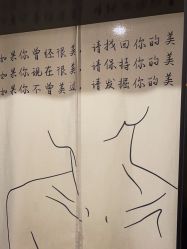 如果你曾经很美 请找回你的美
如果你现在很美 请保持你的美
如果你不曾美过 请发掘你的美